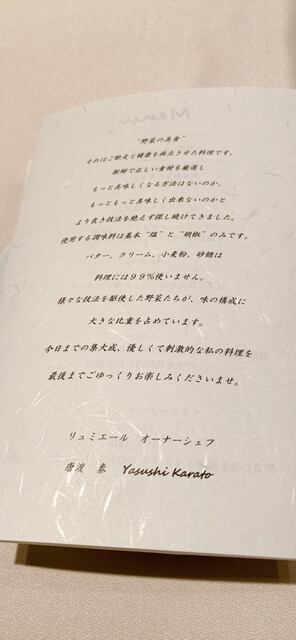 Menu
"野菜の美食"
それはご馳走と健康を両立させた料理です。
新鮮で正しい食材を厳選し
もっと美味しくなる方法はないのか、
もっともっと美味しく出来ないのかと
より良き技法を絶えず探し続けてきました。
使用する調味料は基本"塩"と"胡椒"のみです。
バター、クリーム、小麦粉、砂糖は
料理には99%使いません。
様々な技法を駆使した野菜たちが、味の構成に
大きな比重を占めています。
今日までの集大成、優しくて刺激的な私の料理を
最後までごゆっくりお楽しみくださいませ。
リュミエール オーナーシェフ
唐渡 泰 Yasushi Karato